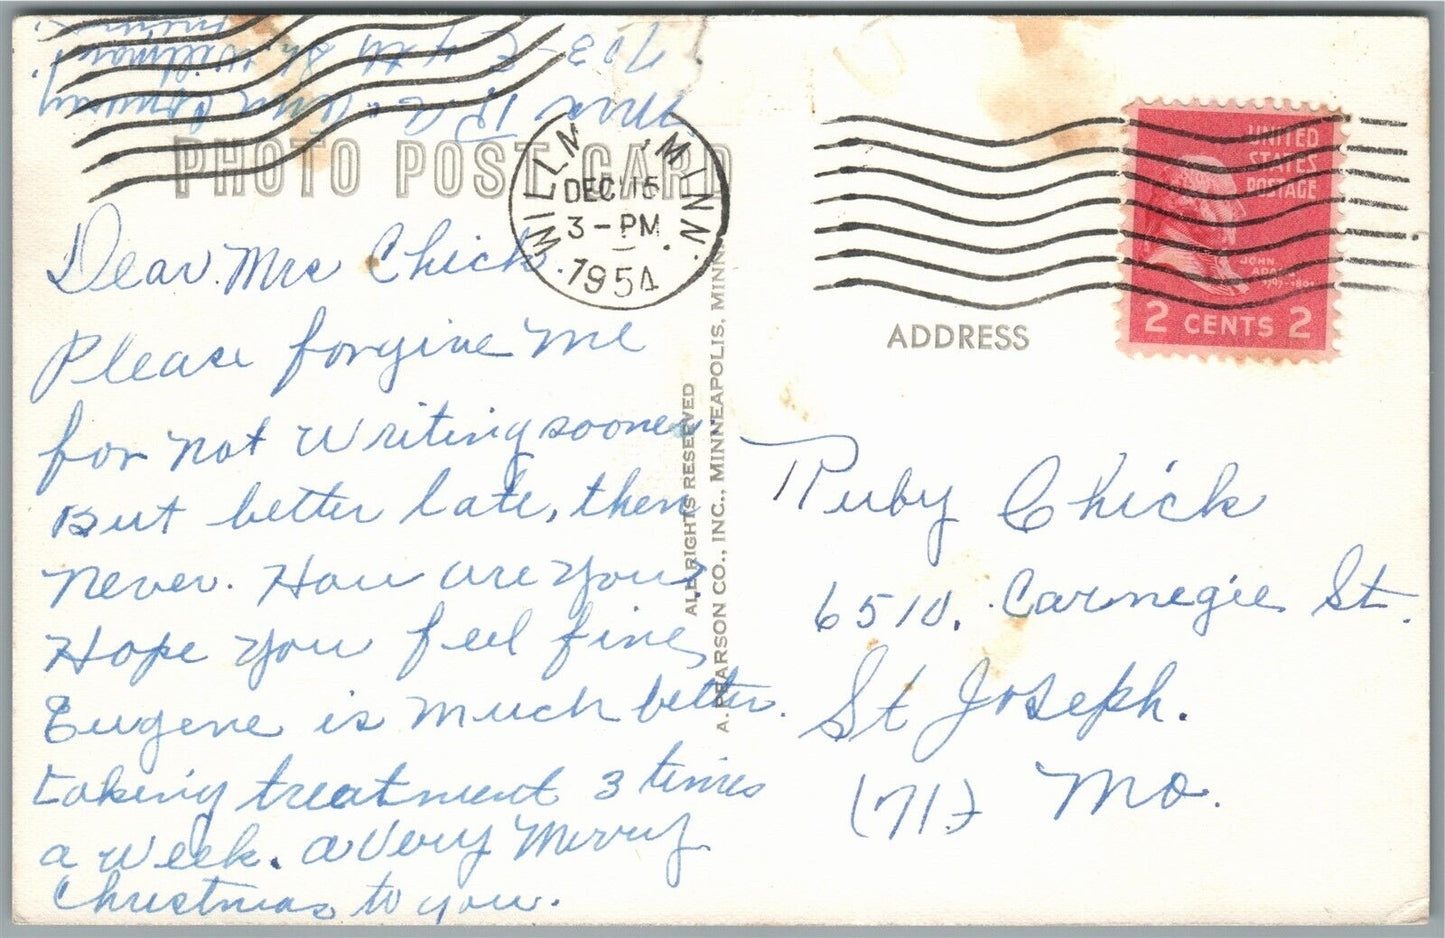 Mrs. R.A.
703-E 4th St. Willmar,
Minn.
PHOTO POST CARD
WILLMAR MINN.
DEC 15
3-PM
1954
UNITED
STATES
POSTAGE
JOHN
ADAMS
1797-1801
2 CENTS 2
ADDRESS
Dear Mrs Chick.
Please forgive me
for not writing sooner
But better late, then
never. How are you?
Hope you feel fine,
Eugene is much better.
taking treatment 3 times
a week. a Very Merry
Christmas to you.
ALL RIGHTS RESERVED
A. PEARSON CO., INC., MINNEAPOLIS, MINN.
Ruby Chick
6510. Carnegie St.
St Joseph.
(71) Mo.